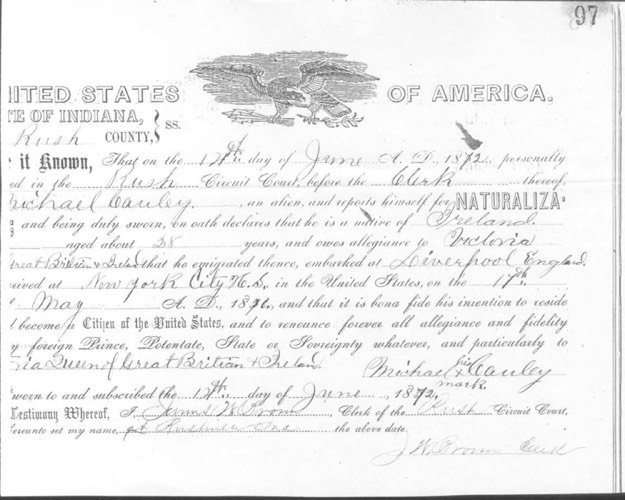 97
NITED STATES OF AMERICA.
TE OF INDIANA,
Rush COUNTY, } SS.
it Known, That on the 12th day of June A. D. 1872 personally
ed in the Rush Circuit Court, before the Clerk thereof,
Michael Cauley, an alien, and reports himself for NATURALIZA-
and being duly sworn, on oath declares that he is a native of Ireland
aged about 28 years, and owes allegiance to Victoria
Great Britian & Ireland that he emigrated thence, embarked at Liverpool England
ived at New York City in the United States, on the 17th
May A. D., 1871, and that it is bona fide his intention to reside
become a Citizen of the United States, and to renounce forever all allegiance and fidelity
y foreign Prince, Potentate, State or Sovreignty whatever, and particularly to
ria Queen of Great Britian & Ireland. Michael his x Cauley
mark
worn to and subscribed the 12th day of June, 1872.
Testimony Whereof, I Clerk of the Rush Circuit Court,
ereunto set my name, at the above date.